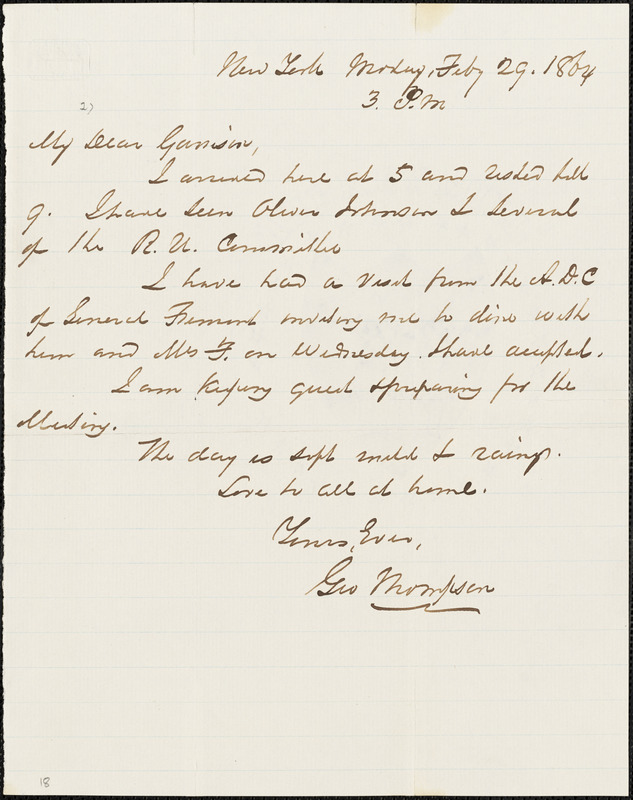 New York Monday, Feby 29. 1864
3. P.M
2)
My Dear Garrison,
I arrived here at 5 and rested till
9. I have seen Oliver Johnson & several
of the R. U. Committee
I have had a visit from the A.D.C
of General Fremont inviting me to dine with
him and Mrs F. on Wednesday. I have accepted.
I am keeping quiet & preparing for the
Meeting.
The day is soft mild & rainy.
Love to all at home.
Yours, Ever,
Geo Thompson
18